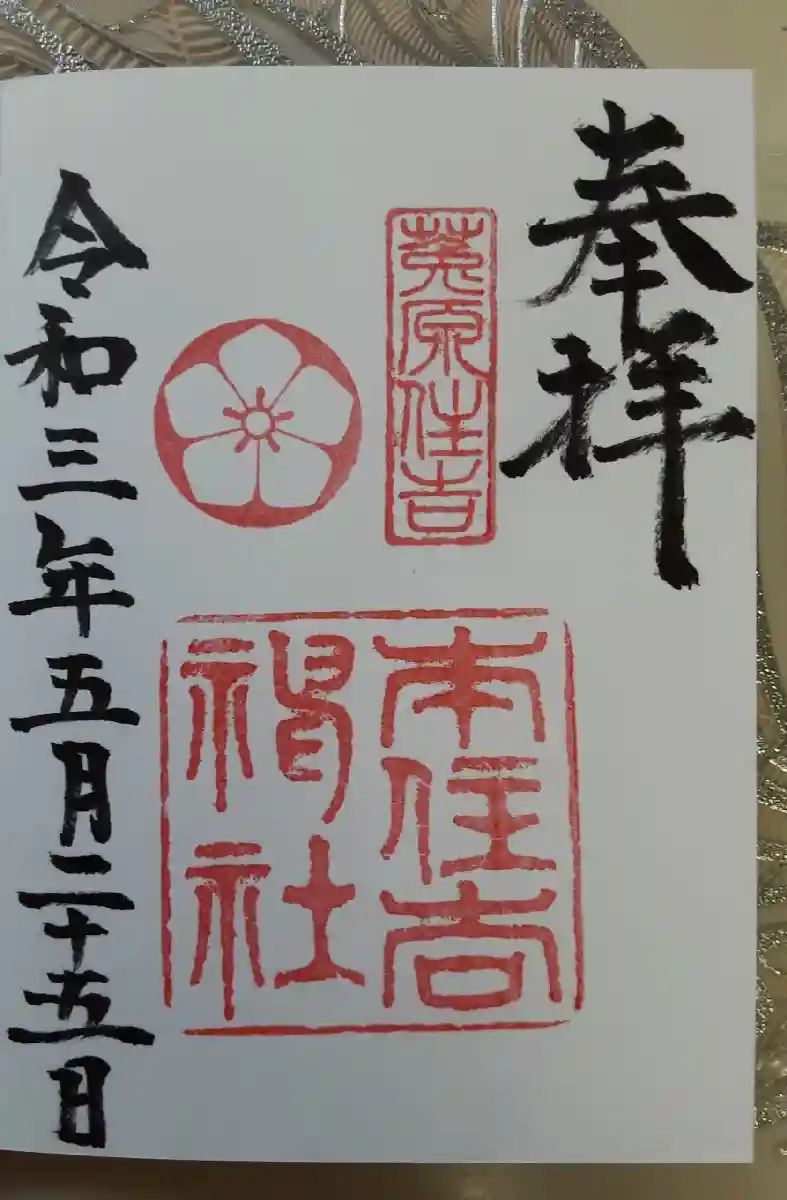 奉拝
菟原住吉
本住吉
神社
令和三年五月二十五日